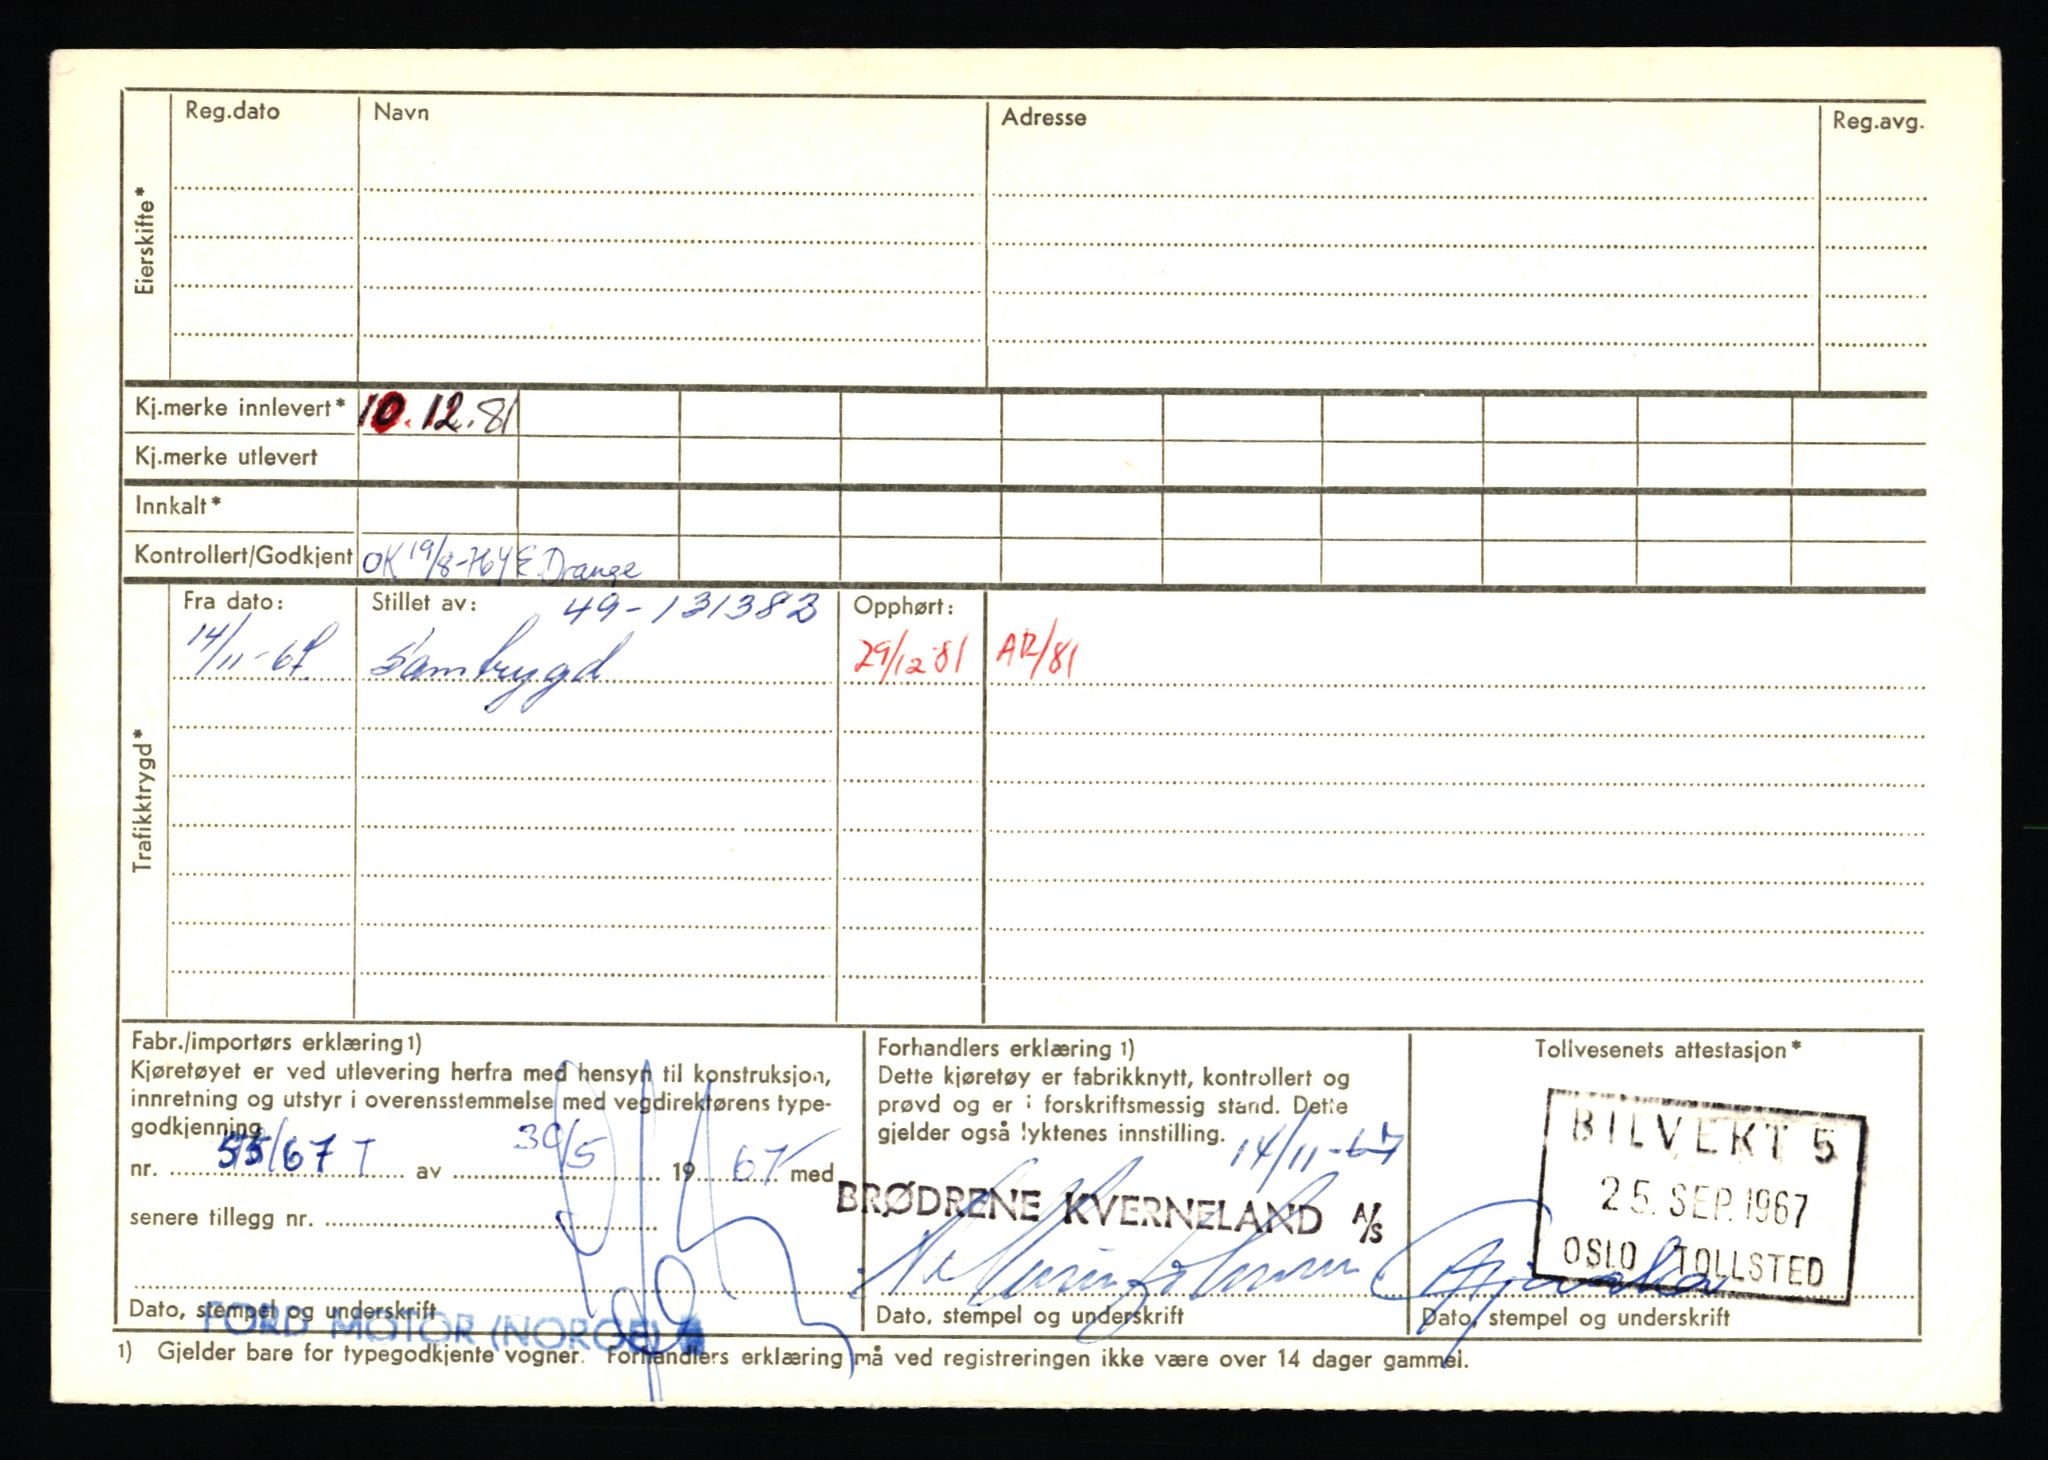 Eierskifte*
Reg.dato Navn Adresse Reg.avg.
Kj.merke innlevert* 10.12.81
Kj.merke utlevert
Innkalt*
Kontrollert/Godkjent OK 19/8-76 E. Drange
Trafikktrygd*
Fra dato: Stillet av: 49-131383 Opphørt:
14/11-67. Samtrygd 29/12-81 AR/81
Fabr./importørs erklæring 1)
Kjøretøyet er ved utlevering herfra med hensyn til konstruksjon,
innretning og utstyr i overensstemmelse med vegdirektørens type-
godkjenning
nr. 55/67 T av 30/5 1967 med
senere tillegg nr.
Dato, stempel og underskrift
FORD MOTOR (NORGE)
Forhandlers erklæring 1)
Dette kjøretøy er fabrikknytt, kontrollert og
prøvd og er i forskriftsmessig stand. Dette
gjelder også lyktenes innstilling. 14/11-67
BRØDRENE KVERNELAND A/S
Dato, stempel og underskrift
Tollvesenets attestasjon*
BILVEKT 5
25. SEP. 1967
OSLO TOLLSTED
Dato, stempel og underskrift
1) Gjelder bare for typegodkjente vogner. Forhandlers erklæring må ved registreringen ikke være over 14 dager gammel.